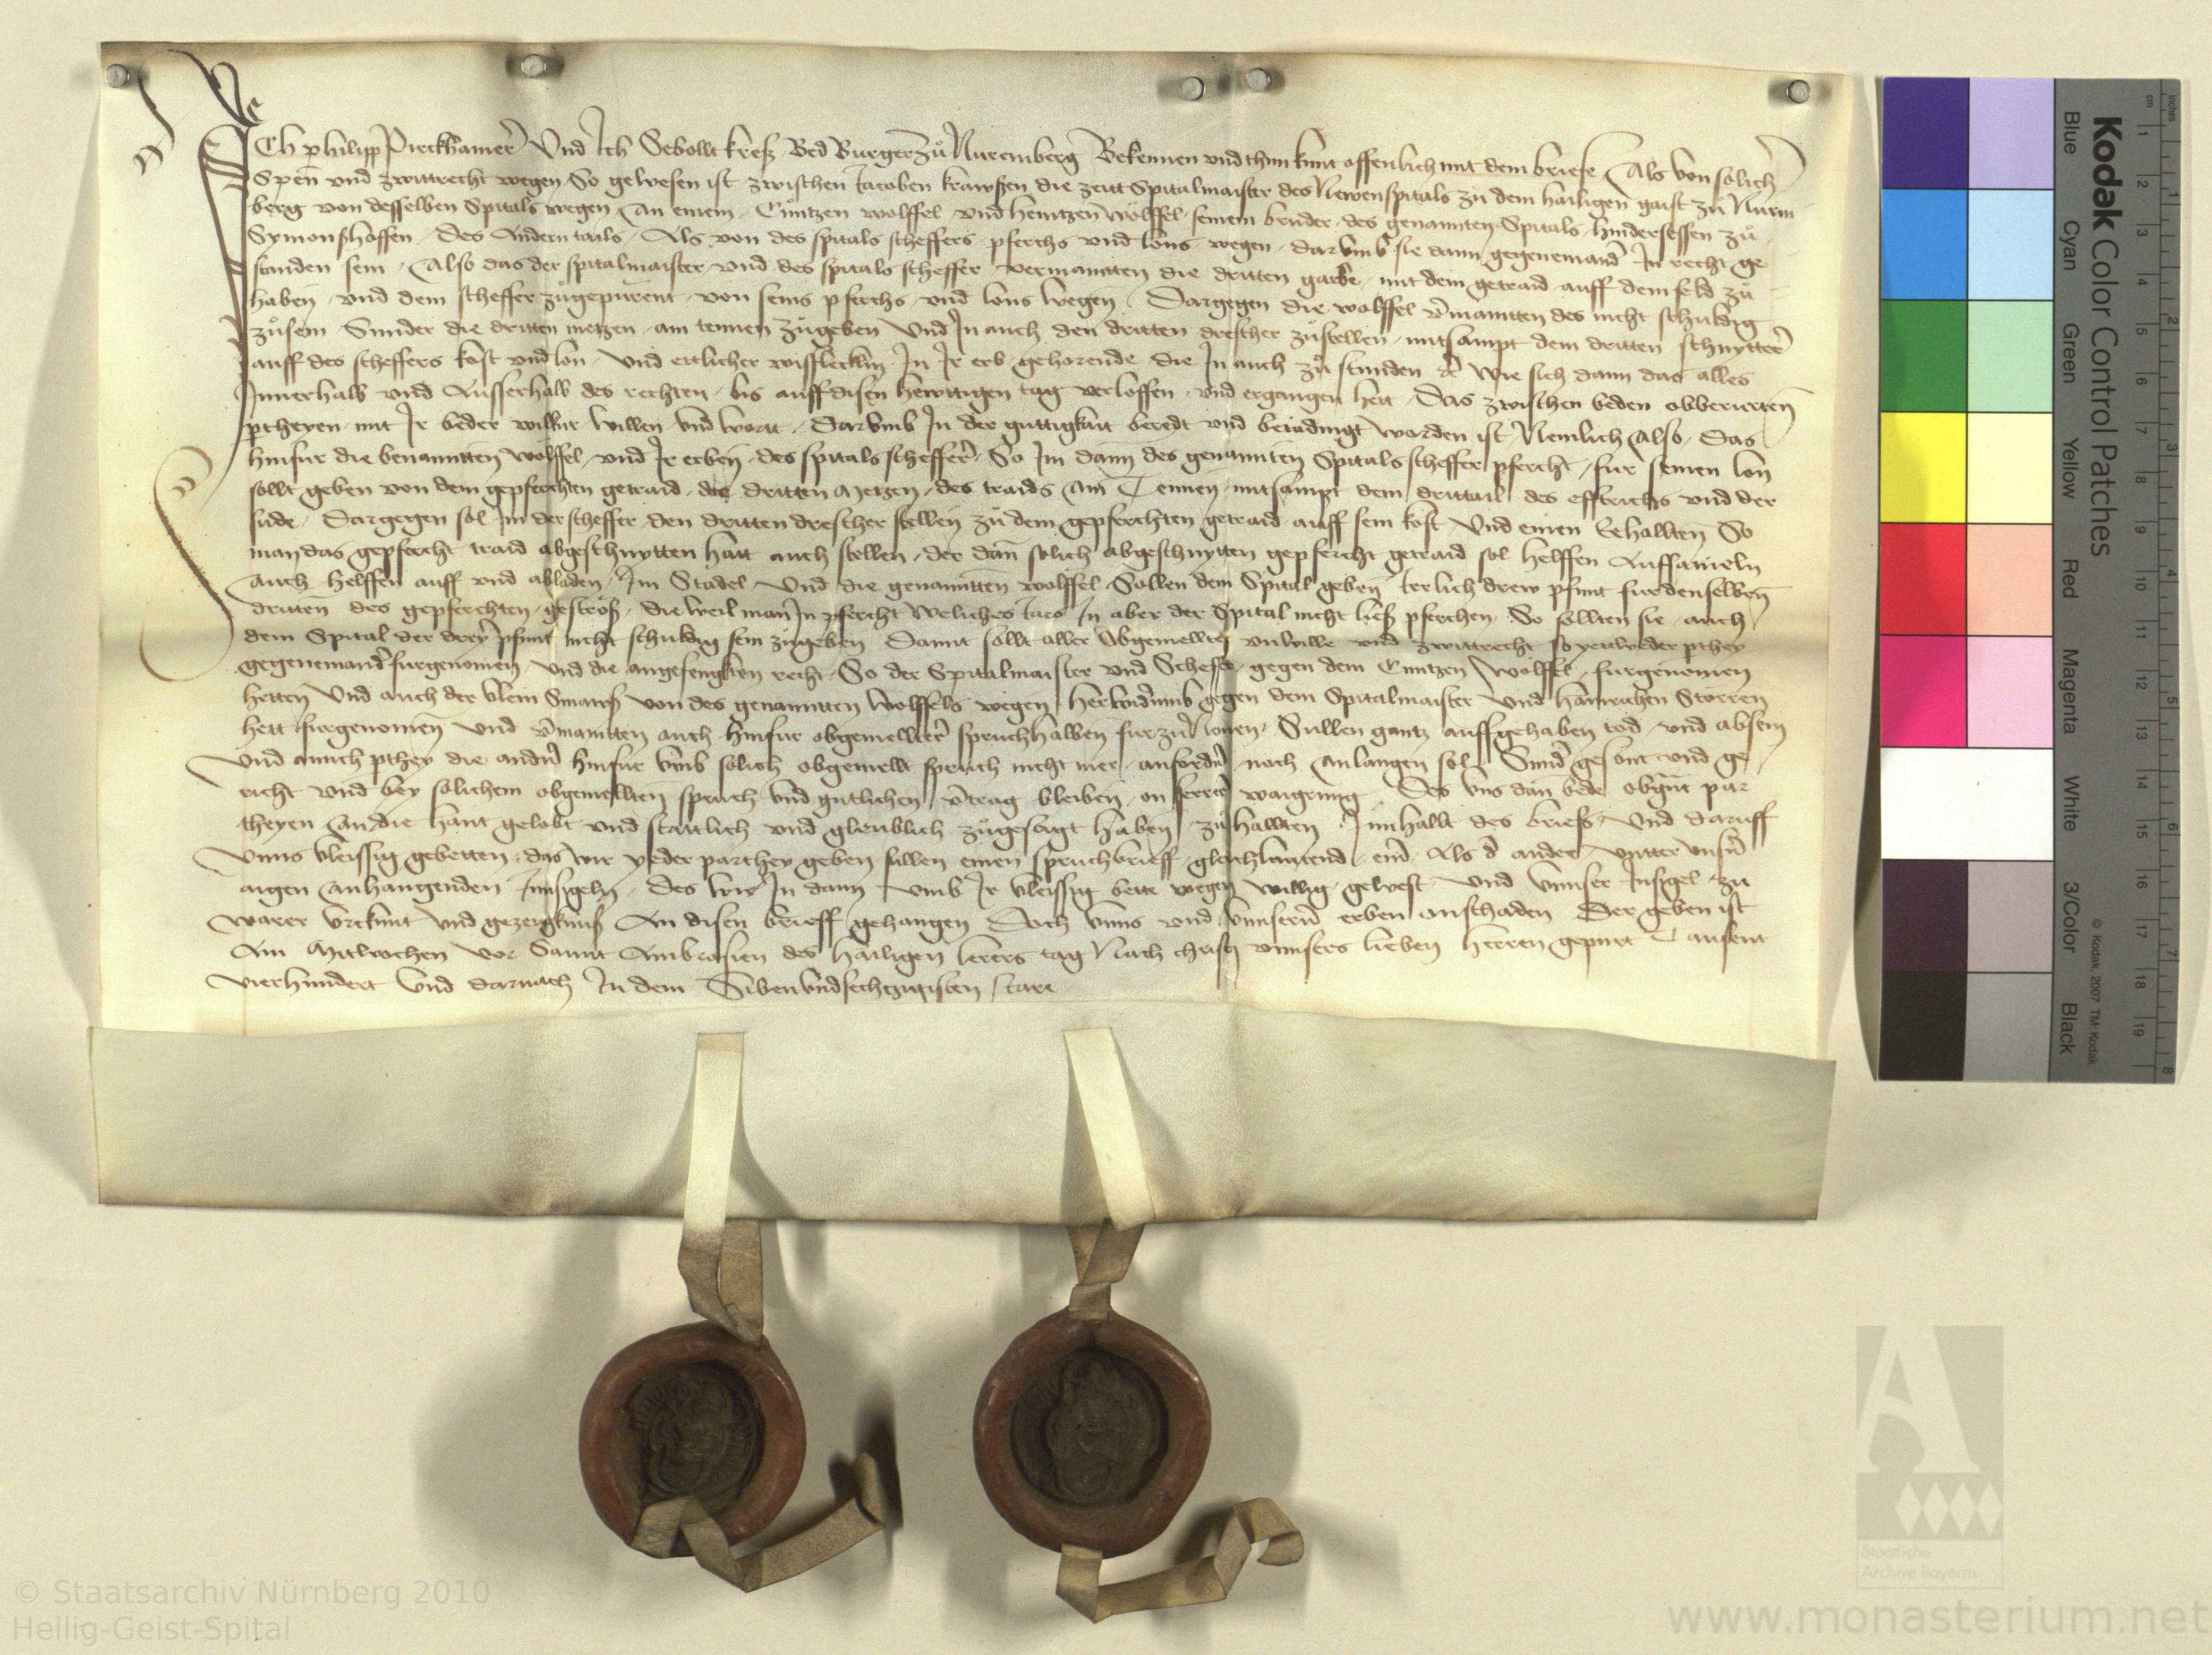 Ich philipp Pirckhamer Und Ich Sebollt kreß Bed Burger zů Nuremberg Bekennen vnd thun kunt offenlich mit dem briefe Als von solich
Spen vnd zwittrecht wegen So gewesen ist zwischen Jacoben krawßen die zeitt Spitalmaister des Newen spitals zů dem hailigen gaist zů Nurm
berg von desselben Spitals wegen An einem Cuntzen wolffel vnd heintzen wolffel seinem bruder des genannten Spitals hindersessen zů
Symonßhoffen des Andern tails Als von des spitals scheffers pferchs vnd lons wegen darvmb sie dann gegeneinand In recht ge
standen sein Also das der spitalmaister vnd des spitals scheffer vermainten die dritten garbe mit dem getraid auff dem feld zů
haben vnd dem scheffer zůgepurent von seins pferchs vnd lons wegen Dargegen die wolffel vmainten des nicht schuldig
zůsein Sunder die dritten metzen am tennen zůgeben Und In auch den dritten drescher zůstellen mitsampt dem dritten schnytter
auff des scheffers kost vnd lon vnd ettlicher wißflecklin In Ir erb gehorende die In auch zů stunden wie sich dann das alles
Innerhalb vnd Ausserhalb des rechten bis auff disen hewttigen tag verloffen vnd ergangen hett Das zwischen beden obberurten
ptheyen mit Ir beder willkur willen vnd wortt Darvmb In der guttigkait beredt vnd beteidingt worden ist Nemlich Also Das
hinfur die benannten wolffel vnd Ir erben des spitals scheffer So Im dann des genannten Spitals scheffer pfercht fur seinen lon
sollt geben von dem gepferchten getraid die dritten Metzen des traids Am Tennen mitsampt dem drittail des effterichs vnd der
sude Dargegen sol Im der scheffer den dritten drescher stellen zů dem gepferchten getraid auff sein kost Und einen Ehallten So
man das gepfercht traid abgeschnytten hatt auch stellen der dan solich abgeschnytten gepfercht getraid sol helffen Auffsameln
Auch helffen auff vnd abladen Im Stadel Und die genannten wolffel Sollen dem Spital geben Jerlich drew pfunt fur denselben
dritten des gepferchten gestroß die weil man In pfercht Weliches Jars In aber der Spital nicht ließ pferchen So sollten sie auch
dem Spital der drey pfunt nicht schuldig sein zůgeben Damit sollt aller Abgemellter vnwille vnd zwittrecht so yetweder pthey
gegeneinander furgenomen vnd die angefengkten recht So der Spitalmaister vnd Scheffer gegen dem Cuntzen Wolffel furgenomen
hetten Und auch der von des genannten wolffels wegen herwidrumb gegen dem Spitalmaister vnd hainrichen Storren
hett furgenomen Und vmainten auch hinfur obgemellter spruch halben fur zů Sullen gantz auffgehaben tod vnd absein
Und auch pthey die andr hinfur vmb solich obgemellt spruch nicht mer anfordn noch Anlangen sol Sund gesont vnd ge
richt vnd bey solichem obgemellten spruch vnd gutlichen vtrag bleiben on ferrer waigrung Des vns dan bede obgnt par
theyen An die hant gelobt vnd stattlich vnd gleublich zůgesagt haben zů hallten Innhallt des briefs Und daruff
Unns vleissig gebetten das wir yeder parthey geben sullen einen spruchbrieff gleichlawtend ein Als d ander vntter vnsn
aigen Anhangenden Innsigeln des wir In dann vmb Ir vleissig bette wegen willig gewest Und vnnser Insigel zu
warer vrkunt vnd gezewgknuß An disen brieff gehangen Doch vnns vnd vnnsern erben onschaden Der geben ist
Am Mitwochen vor Sannt Ambrosien des hailigen lerers tag Nach christ vnnsers lieben herren gepurt Tausent
vierhundert Und darnach In dem Sibenvndsechtzigisten Jare
Kodak Color Control Patches
Blue Cyan Green Yellow Red Magenta White 3/Color Black
© Kodak, 2007 TM: Kodak
cm 1 2 3 4 5 6 7 8 9 10 11 12 13 14 15 16 17 18 19
inches 1 2 3 4 5 6 7 8
Staatliche
Archive Bayerns
© Staatsarchiv Nürnberg 2010
Heilig-Geist-Spital
www.monasterium.net